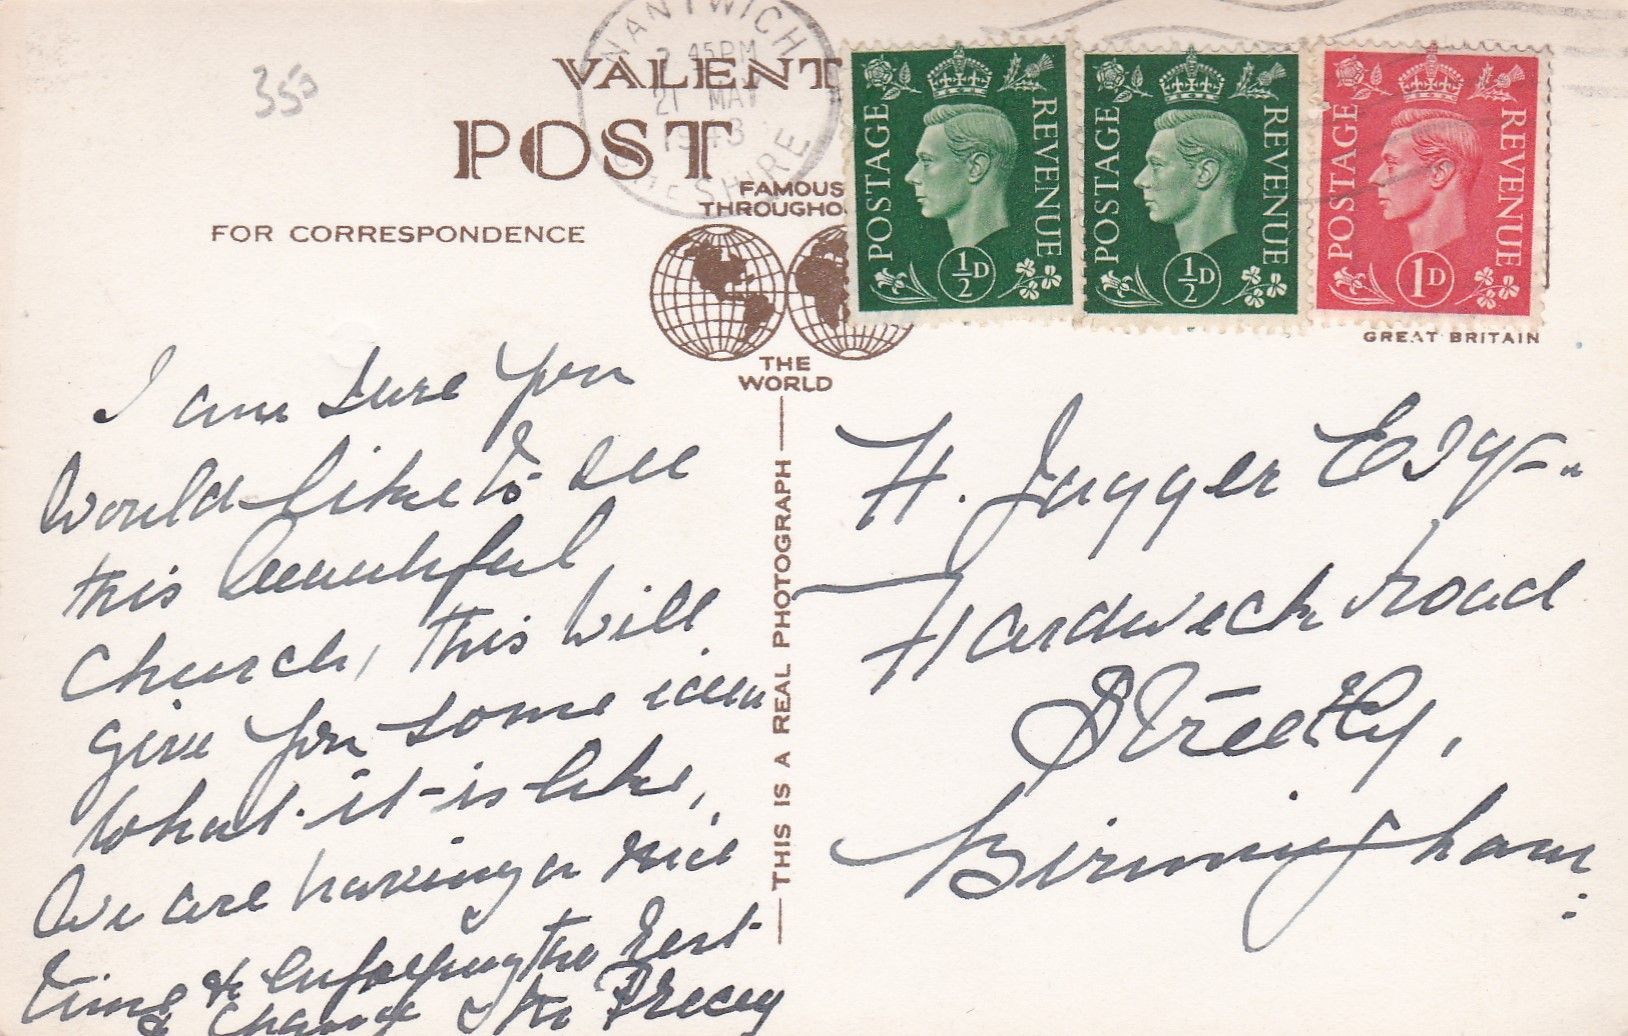 350
NANTWICH
2 45PM
21 MAY
CHESHIRE
VALENT
POST
FAMOUS
THROUGHO
THE
WORLD
FOR CORRESPONDENCE
POSTAGE REVENUE
½D
POSTAGE REVENUE
½D
POSTAGE REVENUE
1D
GREAT BRITAIN
THIS IS A REAL PHOTOGRAPH
I am sure you
would like to see
this beautiful
Church, this will
give you some idea
what it is like,
We are having a nice
time & enjoying the rest
& change &
H. Jagger Esq
Hardwick Road
Streetly,
Birmingham